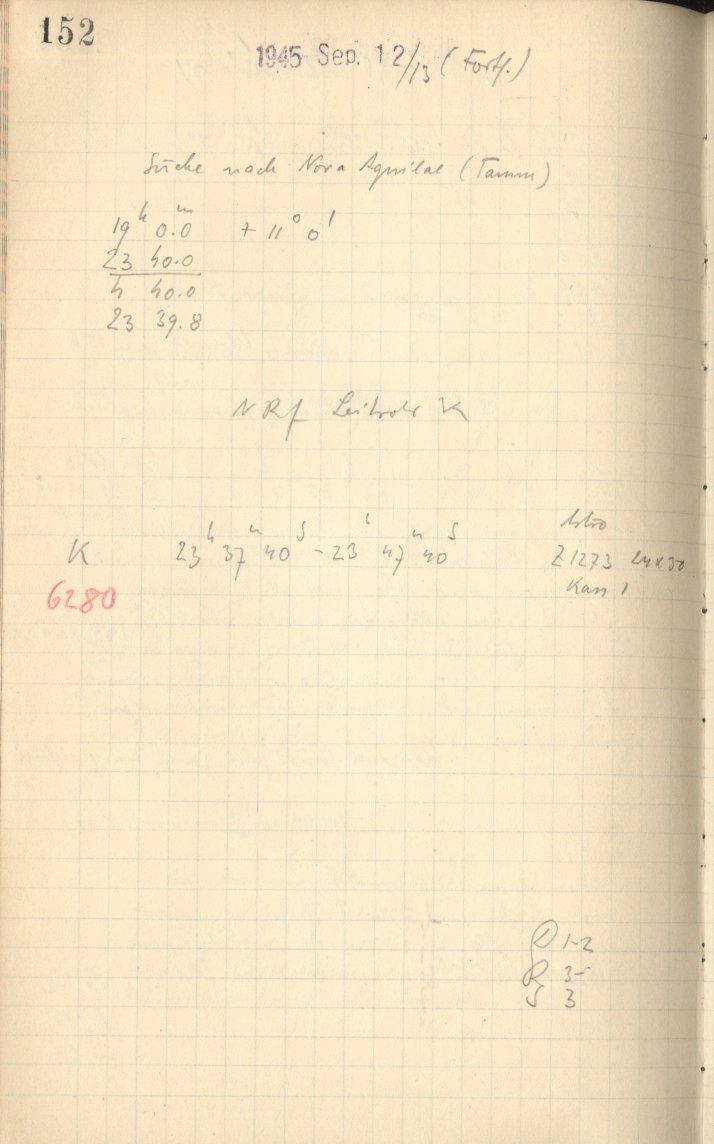 152
1945 Sep. 12/13 (Forts.)
Suche nach Nova Aquilae (Tamm)
19h 0.0m + 11° 0'
23 40.0
4 40.0
23 39.8
N Rf Leitrohr K
K 23h 37m 40s - 23h 47m 40s
Astro
Z 1273 24x30
Kass 1
6280
D 1-2
R 3-
S 3